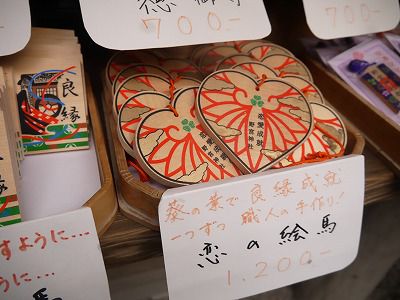 御守
700.-
700.-
良縁
恋愛成就
野宮神社
葵の葉で良縁成就
一つずつ職人の手作り!
恋の絵馬
1,200.-
すように...
に...
馬